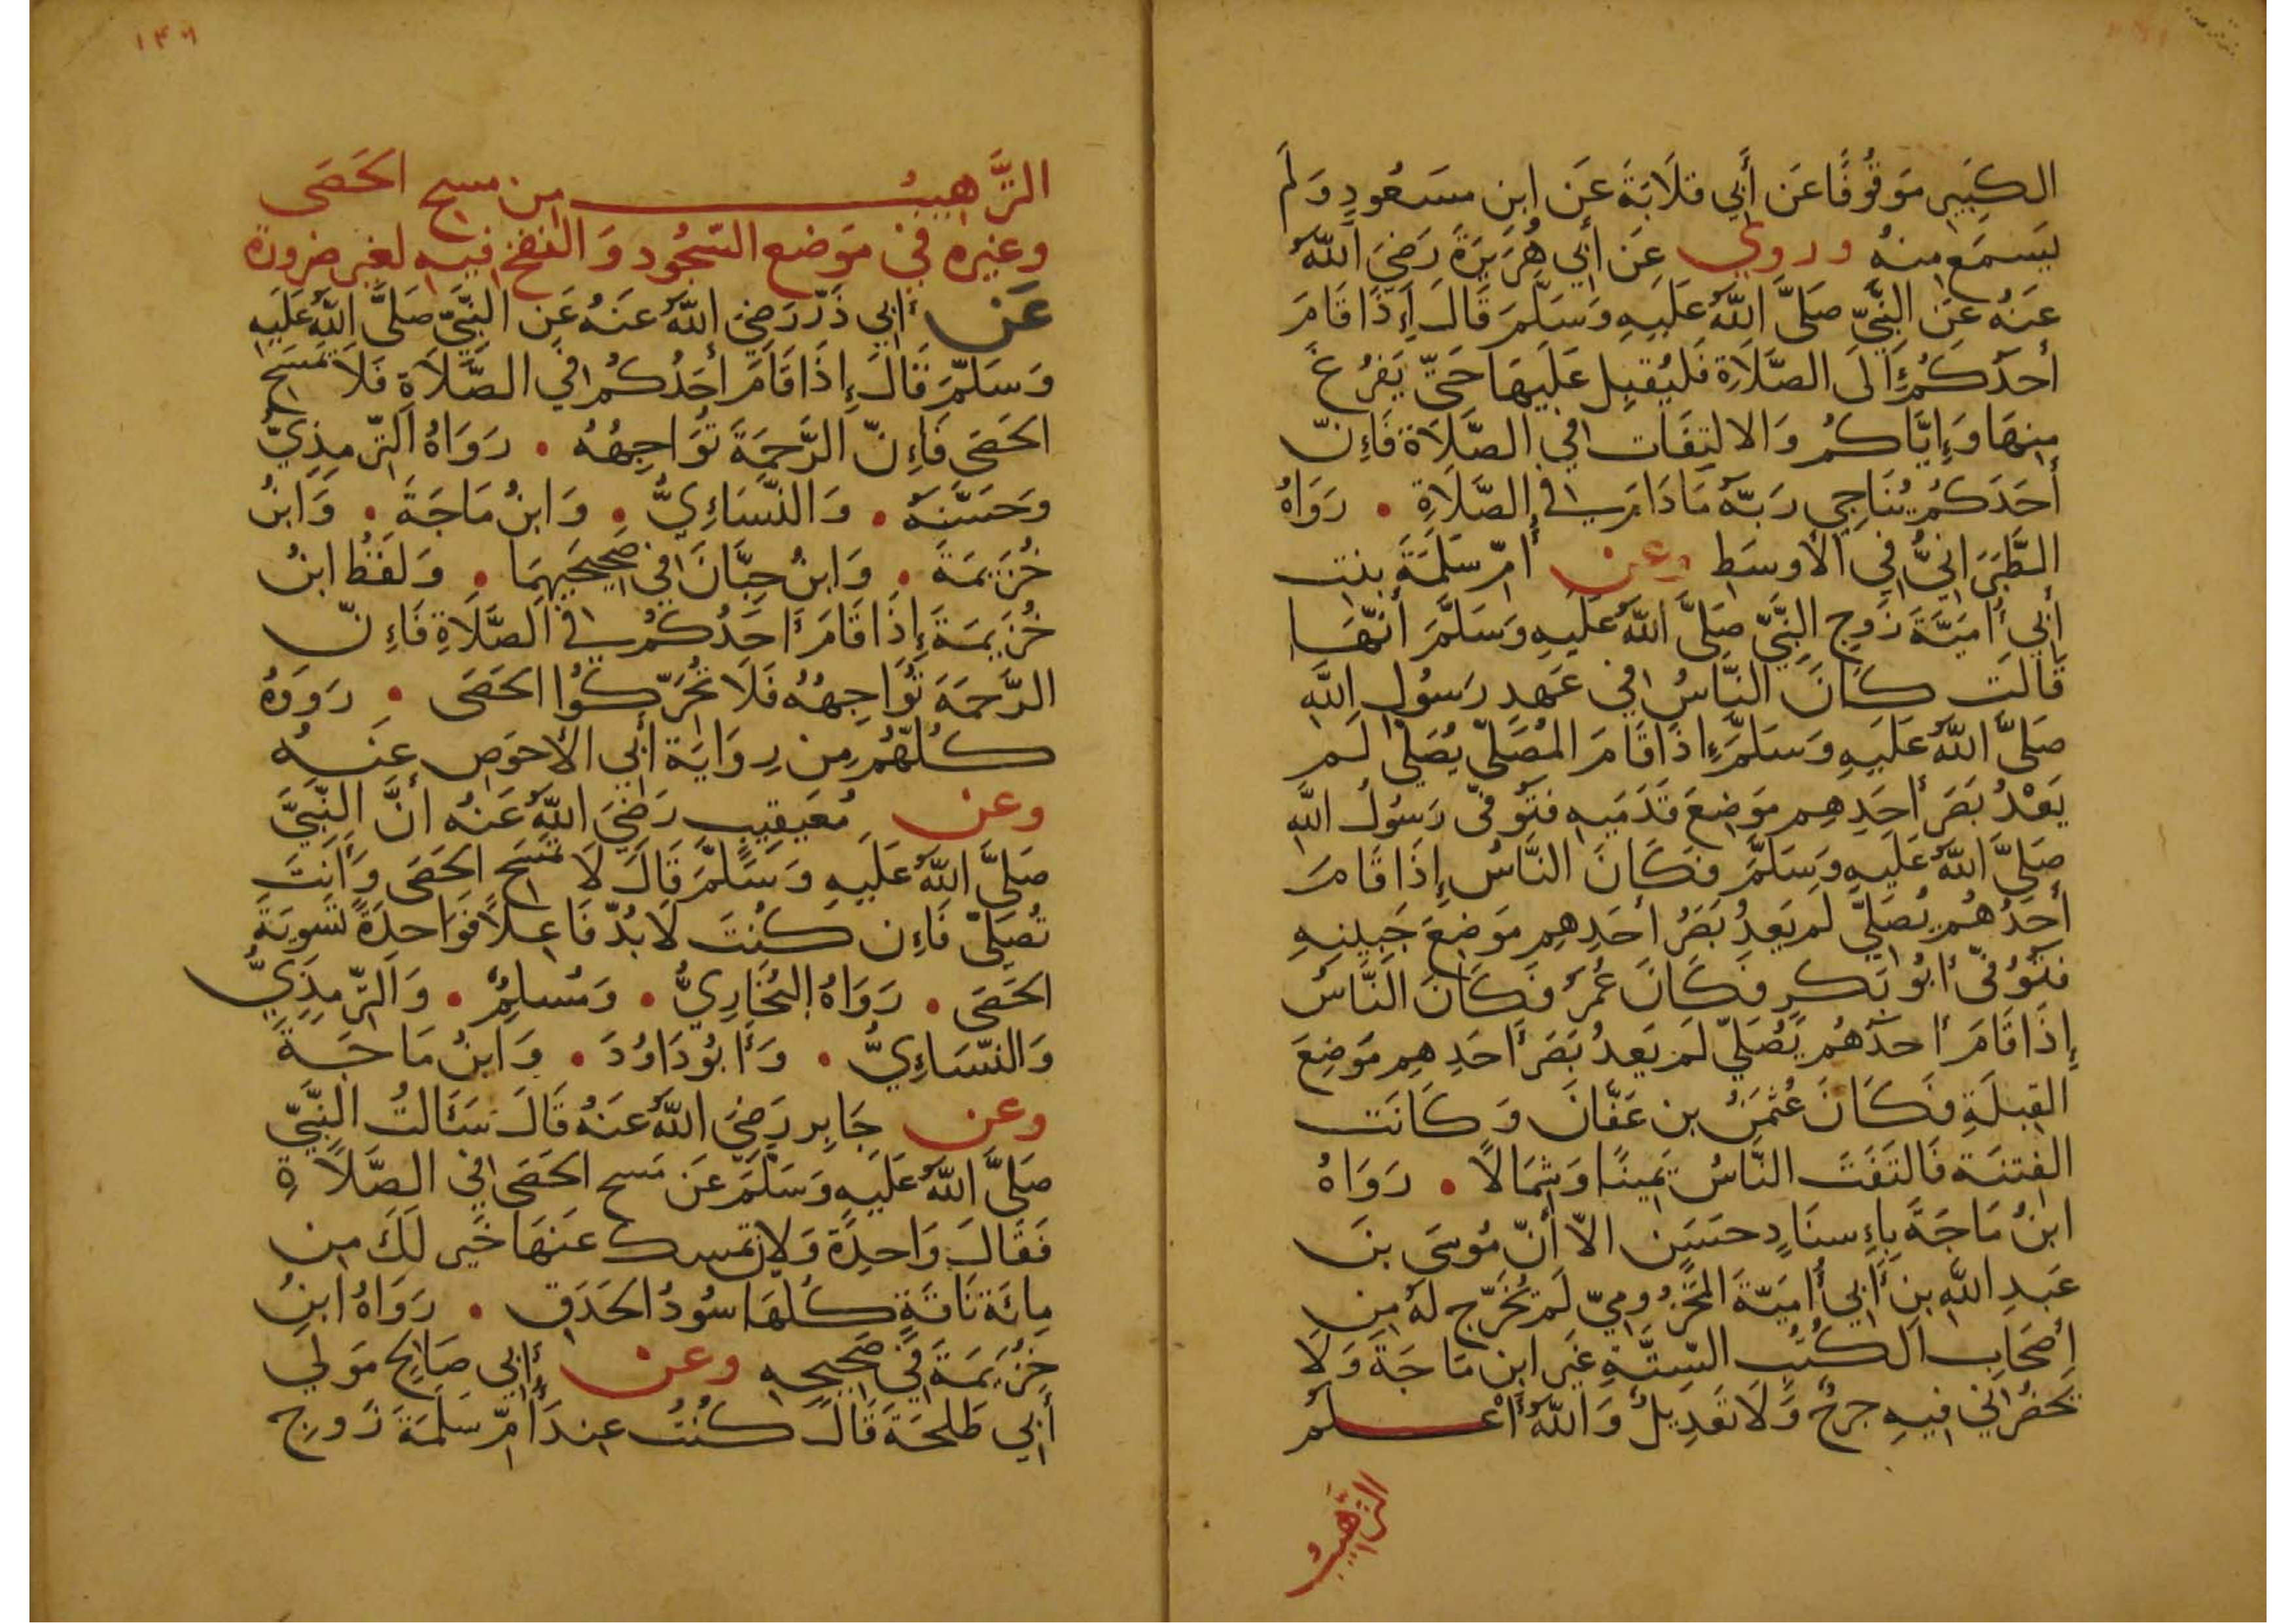 الكَبِيرِ مَوقُوفًا عَن أَبِي قلَابَةَ عَن ابنِ مسَعُودٍ وَلَم
يَسمَع مِنهُ وروي عَن أَبِي هُرَيرَةَ رَضِيَ اللَّهُ
عَنهُ عَن النَّبِيِّ صَلَّى اللَّهُ عَلَيهِ وَسَلَّمَ قَالَ إِذَا قَامَ
أَحَدُكُم إِلَى الصَّلَاةِ فَليُقبِل عَلَيهَا حَتَّى يَفرُغَ
مِنهَا وَإِيَّاكُم وَالالتِفَات فِي الصَّلَاة فَإِنّ
أَحَدَكُم يُنَاجِي رَبَّهُ مَا دَامَ فِي الصَّلَاةِ • رَوَاهُ
الطَّبَرَانِيُّ فِي الأَوسَط وعن أُمّ سَلَمَةَ بِنت
أَبِي أُمَيَّةَ زَوجِ النَّبِيِّ صَلَّى اللَّهُ عَلَيهِ وَسَلَّمَ أَنَّهَا
قَالَت كَانَ النَّاسُ فِي عَهدِ رَسُولِ اللَّهِ
صَلَّى اللَّهُ عَلَيهِ وَسَلَّمَ إِذَا قَامَ المُصَلِّي يُصَلِّي لَم
يَعْدُ بَصَرُ أَحَدِهِم مَوضِعَ قَدَمَيهِ فَتُوُفّى رَسُولُ اللَّهِ
صَلَّى اللَّهُ عَلَيهِ وَسَلَّمَ فَكَانَ النَّاسُ إِذَا قَامَ
أَحَدُهُم يُصَلِّي لَم يَعدُ بَصَرُ أَحَدِهِم مَوضِعَ جَبِينِهِ
فَتُوُفّى أَبُو بَكرٍ فَكَانَ عُمَرُ فَكَانَ النَّاسُ
إِذَا قَامَ أَحَدُهُم يُصَلِّي لَم يَعدُ بَصَرُ أَحَدِهِم مَوضِعَ
القِبلَةِ فَكَانَ عُثمَنُ بن عَفَّانَ وَكَانَت
الفِتنَة فَالتَفَتَ النَّاسُ يَمِينًا وَشِمَالًا • رَوَاهُ
ابنُ مَاجَةَ بِإِسنَادٍ حسَنٍ الاّ أَنّ مُوسَى بنَ
عَبدِ اللَّهِ بنِ أَبِي أُمَيَّةَ المَخزُومِيّ لَم يُخَرِّج لَهُ مِن
أَصحَابِ الكُتُبِ السِّتَّةِ غَير ابنِ مَاجَةَ وَلَا
يَحضُرُنِي فِيهِ جرحٌ وَلَا تَعدِيلٌ وَاللَّهُ أَعْلَمُ
التَّرهِيبُ
١٣٩
التَّرهِيبُ مِن مسح الحَصَى
وغيره فِي مَوضع السّجُود وَالنفخ فِيهِ لغير ضرورة
عَن أَبِي ذَرّ رَضِيَ اللَّهُ عَنهُ عَنِ النَّبِيِّ صَلَّى اللَّهُ عَلَيهِ
وَسَلَّمَ قَالَ إِذَا قَامَ أَحَدُكُم فِي الصَّلَاةِ فَلَا يَمسَح
الحَصَى فَإِنّ الرَّحمَةَ تُوَاجِهُهُ • رَوَاهُ التِّرمِذِيُّ
وَحَسَّنَهُ • وَالنَّسَاءِيُّ • وَابنُ مَاجَةَ • وَابنُ
خُزَيمَةَ • وَابنُ حِبَّانَ فِي صَحِيحَيهِمَا • وَلَفظُ ابنُ
خُزَيمَةَ إِذَا قَامَ أَحَدُكُم فِي الصَّلَاةِ فَإِنّ
الرَّحمَةَ تُوَاجِهُهُ فَلَا تُحَرِّكُوا الحَصَى • رَوَوهُ
كُلُّهُم مِن رِوَايَة أَبِي الأَحوَصِ عَنهُ
وعن مُعَيقِيبٍ رَضِيَ اللَّهُ عَنهُ أَنَّ النَّبِيَّ
صَلَّى اللَّهُ عَلَيهِ وَسَلَّمَ قَالَ لَا تَمسَح الحَصَى وَأَنتَ
تُصَلِّي فَإِن كُنتَ لَابُدّ فَاعِلًا فَوَاحِدَةً تَسوِيَة
الحَصَى • رَوَاهُ البُخَارِيُّ • وَمُسلِمٌ • وَالتِّرمِذِيُّ
وَالنَّسَاءِيُّ • وَأَبُو دَاوُدَ • وَابنُ مَاجَةَ
وعن جَابِر رَضِيَ اللَّهُ عَنهُ قَالَ سَئَالتُ النَّبِيَّ
صَلَّى اللَّهُ عَلَيهِ وَسَلَّمَ عَن مَسحِ الحَصَى فِي الصَّلَاةِ
فَقَالَ وَاحِدَة وَلَان تمسِك عَنهَا خَير لَكَ مِن
مِائَة نَاقَةٍ كُلّهَا سُودُ الحَدَقِ • رَوَاهُ ابنُ
خُزَيمَةَ فِي صَحِيحِهِ وعن أَبِي صَالِحٍ مَولَى
أَبِي طَلحَةَ قَالَ كُنتُ عِندَ أُمّ سَلَمَةَ زَوجِ